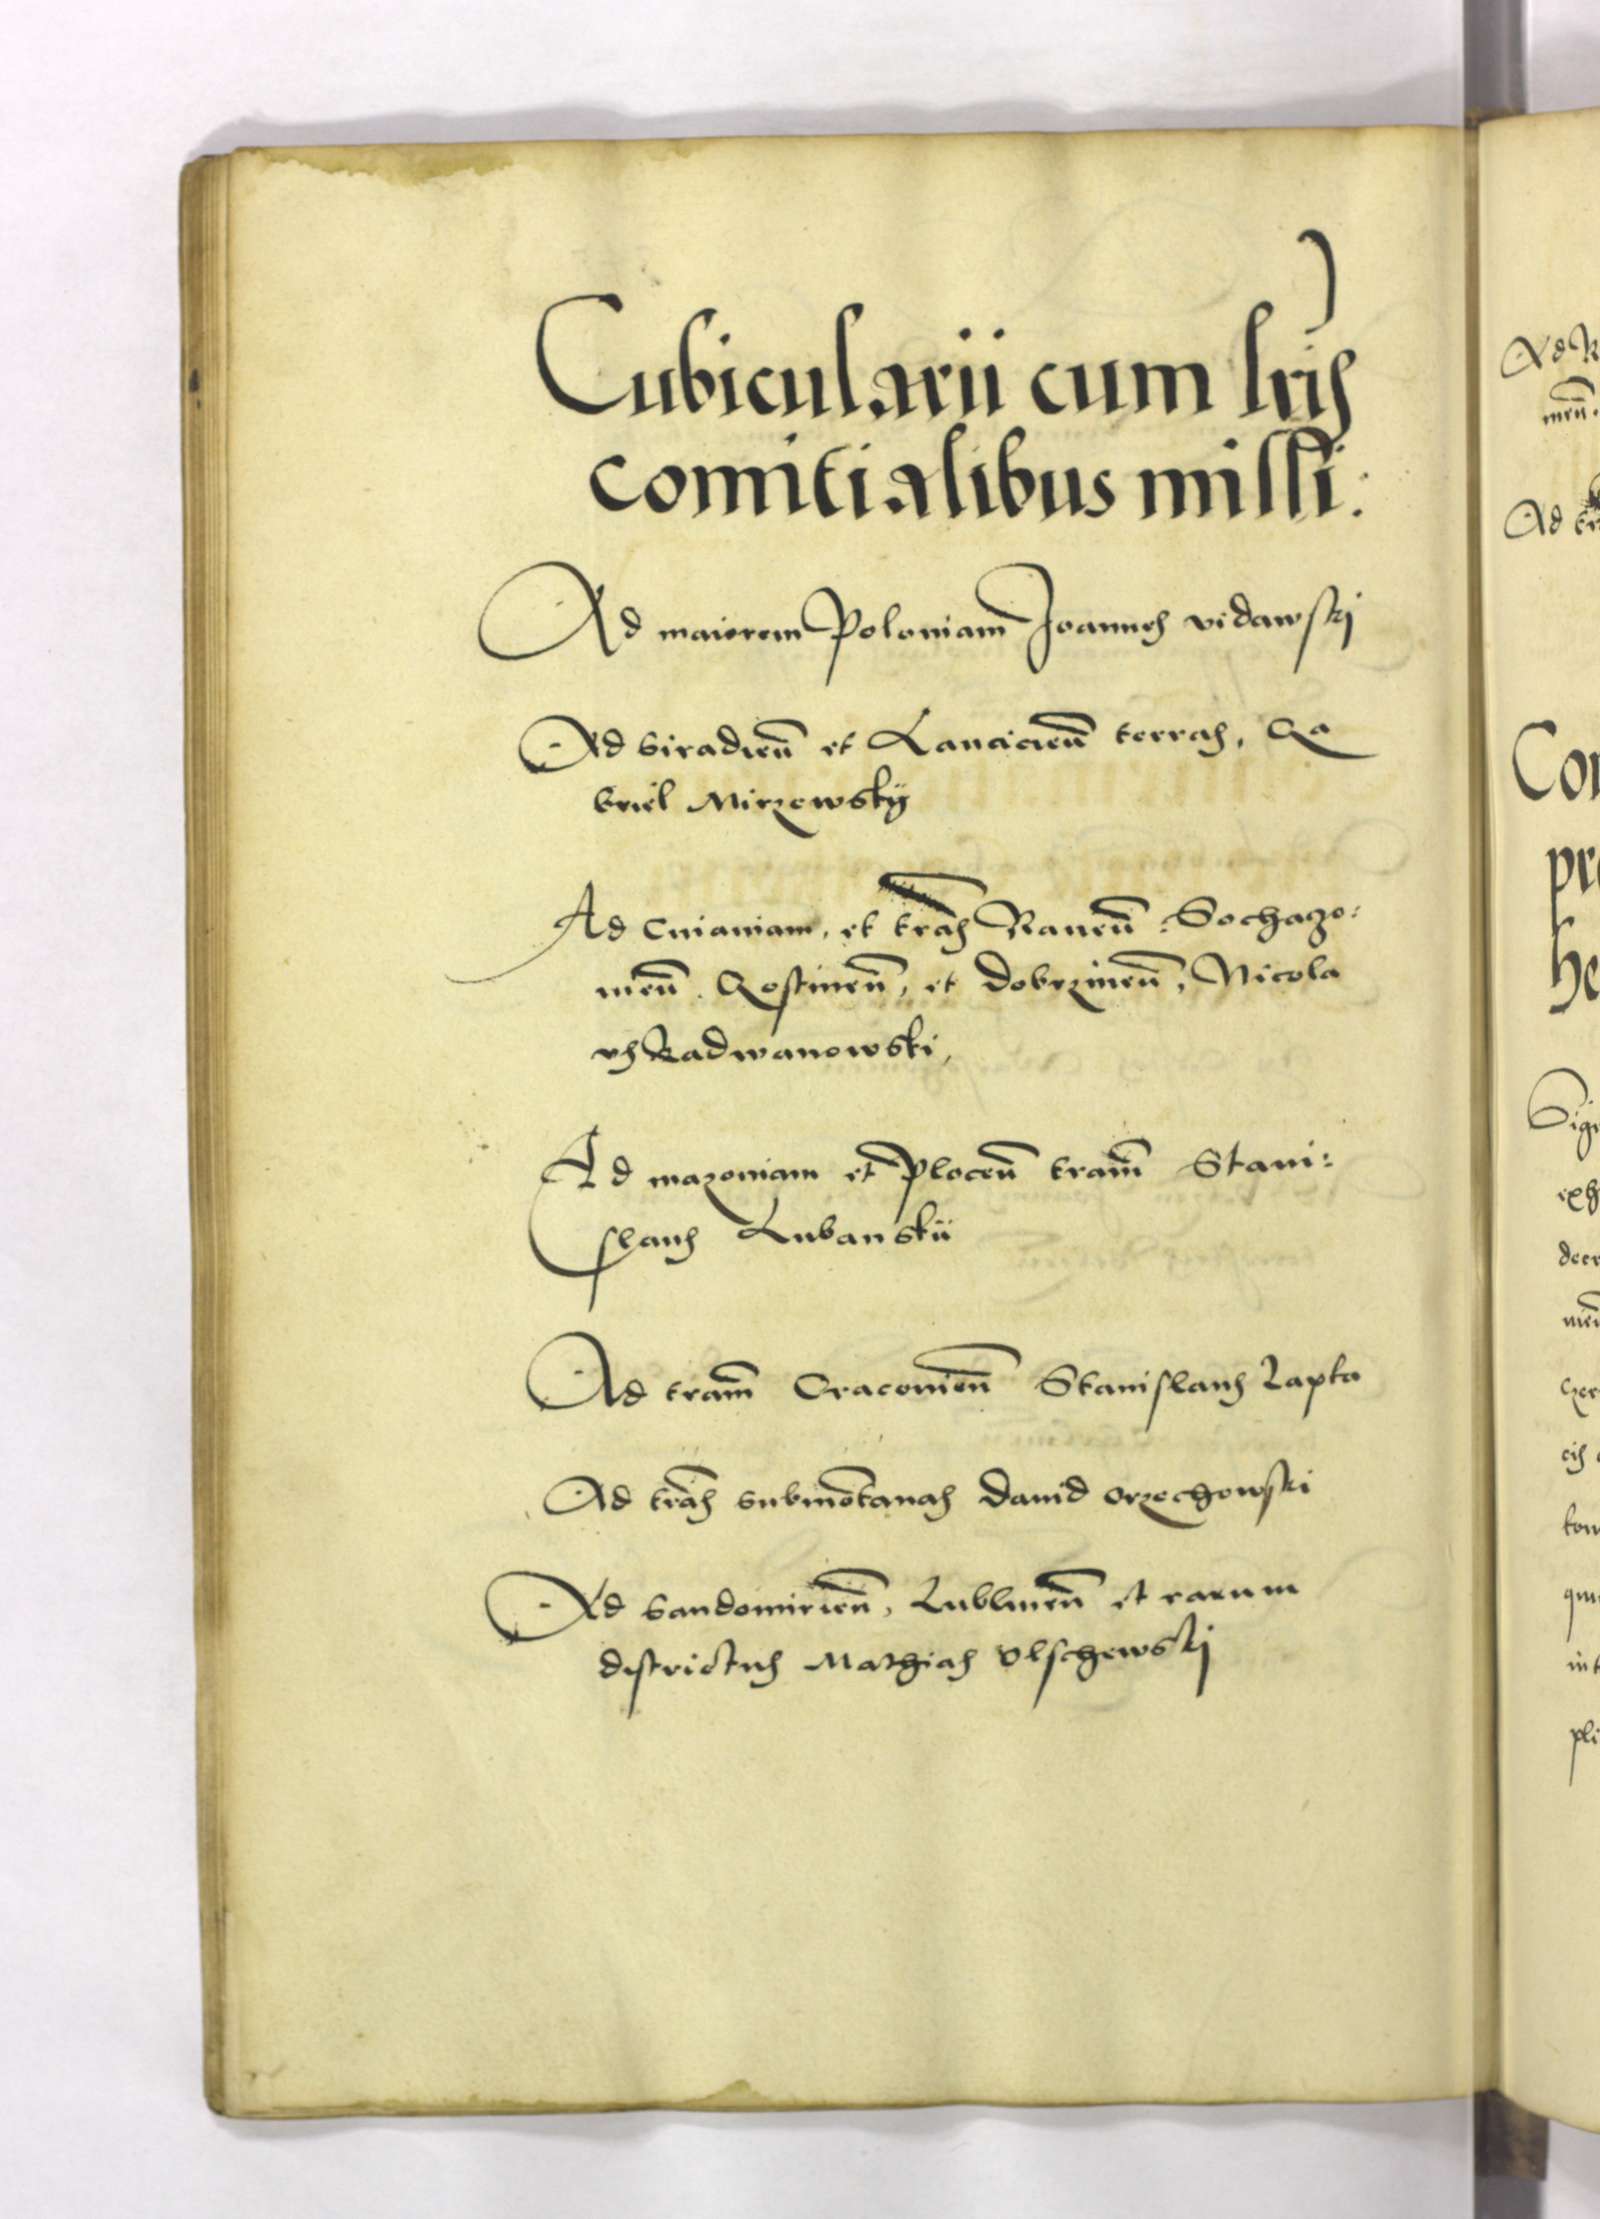 Cubicularii cum lris
comitialibus missi.
Ad maiorem Poloniam Joannes vidawskj
Ad Siradien̄ et Lancicien̄ terras, Ga
briel Mirzewskij
Ad Cuiauiam, et tras̄ Rauen̄ Sochaczo:
uien̄. Gostinen̄, et dobrzinen̄, Nicola
us Radwanowski,
Ad mazouiam et Plocen̄ tram̄ Stani:
slaus Lubanskii
Ad tram̄ Cracouien̄ Stanislaus Lapka
Ad tras̄ submōtanas dauid orzechowski
Ad Sandomirien̄, Lublinen̄ et earum
districtus Mathias Olschewskj
Ad
Ad
Con
pr
he
Sig
exh
decr
tom
int
pli